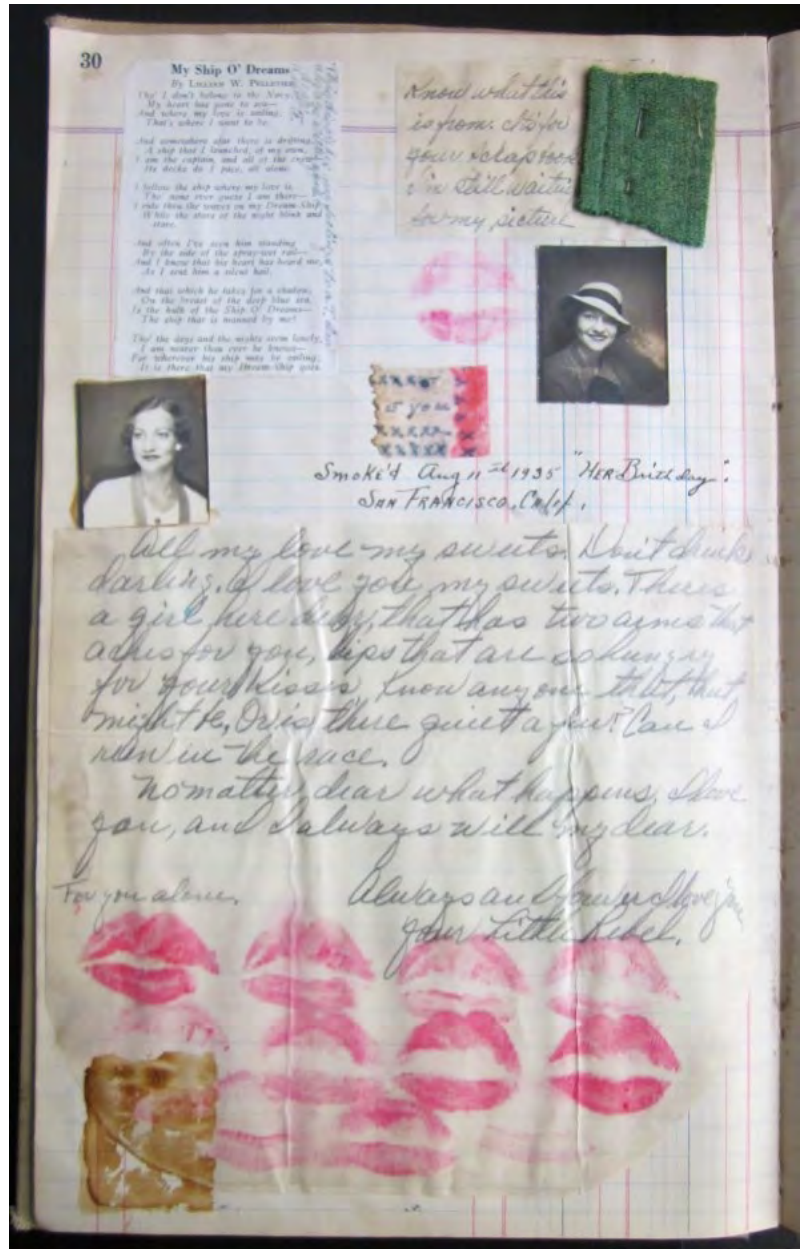 30
My Ship O' Dreams
By LILLIAN W. PELLETIER
Tho' I don't belong to the Navy,
My heart has gone to sea—
And where my love is sailing,
That's where I want to be.
And somewhere afar there is drifting
A ship that I launched, of my own,
I am the captain, and all of the crew
Its decks do I pace, all alone.
I follow the ship where my love is,
Tho' none ever guess I am there—
I ride thru the waves on my Dream-Ship
While the stars of the night blink and
stare.
And often I've seen him standing
By the side of the spray-wet rail—
And I know that his heart has heard me,
As I sent him a silent hail.
And that which he takes for a shadow,
On the breast of the deep blue sea,
Is the hulk of the Ship O' Dreams—
The ship that is manned by me!
Tho' the days and the nights seem lonely,
I am nearer than ever he knows—
For wherever his ship may be sailing,
It is there that my Dream-Ship goes.
Know what this
is from. It's for
your scrapbook
I'm still waitin
for my picture
xxxx
you
xxxx
Smoke'd Aug 11th 1935 "HER Birthday".
SAN FRANCISCO, Calif.
All my love my sweets. Don't drink
darling. I love you, my sweets. There's
a girl here dear, that has two arms that
aches for you, lips that are so hungry
for your kisses, know anyone that, that
might be, Or is there quiet a few? Can I
run in the race.
No matter dear what happens, I love
you, and I always will my dear.
For you alone.
Always and forever I love you
your Little Rebel.